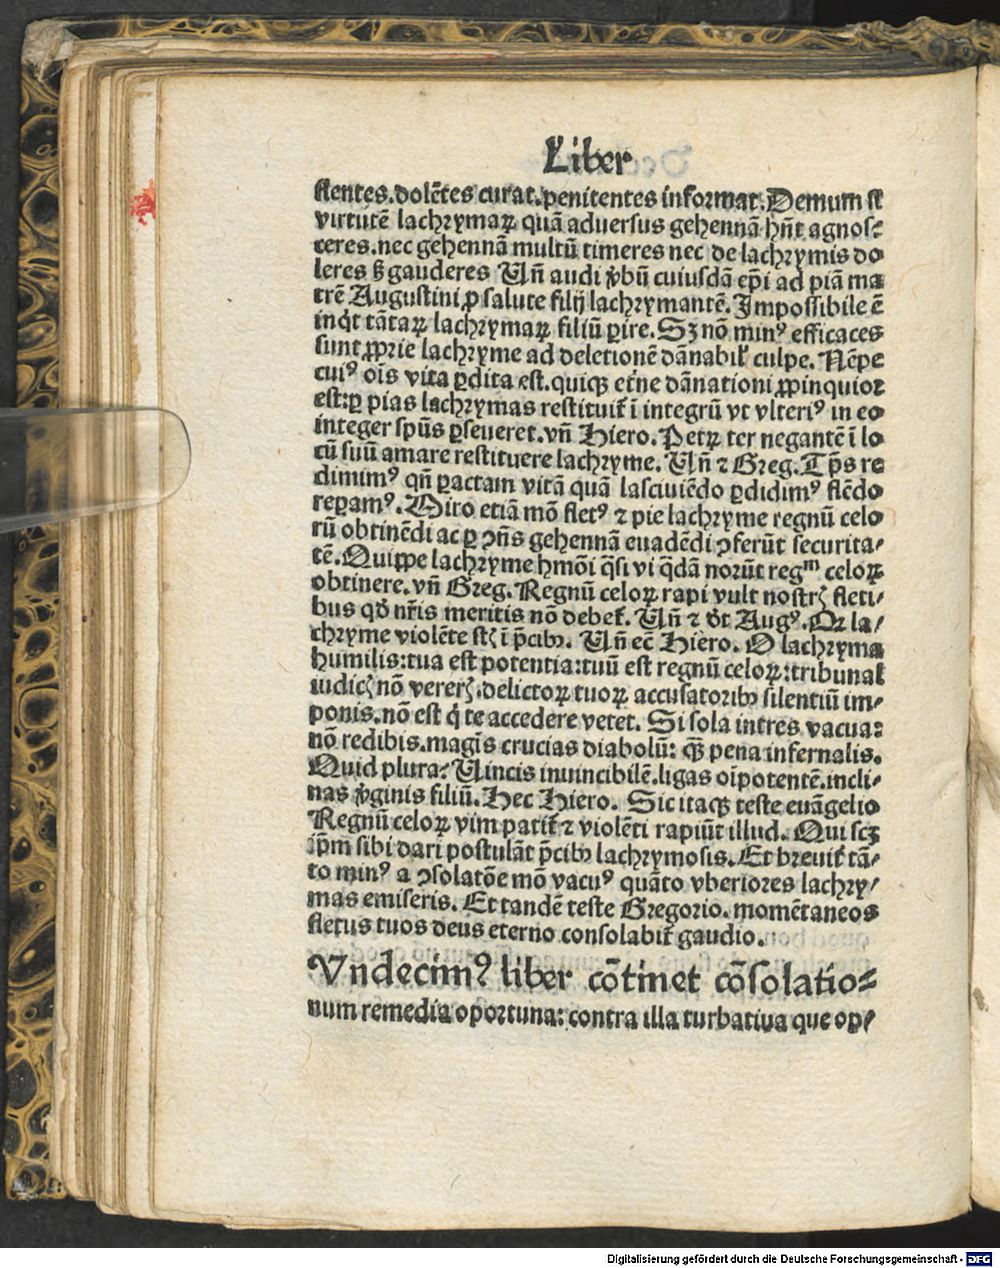 Liber
flentes. dolētes curat. penitentes informat. Demum si
virtutē lachrymaꝝ quā adversus gehennā hn̄t agnos⸗
ceres. nec gehennā multū timeres nec de lachrymis do
leres sꝫ gauderes Un̄ audi v̓bū cuiusdā ep̄i ad piā ma
trē Augustini ꝓ salute filij lachrymantē. Impossibile ē
inq̇t tātaꝝ lachrymaꝝ filiū ꝑire. Sꝫ nō minꝰ efficaces
sunt ꝓprie lachryme ad deletionē dānabil̓ culpe. Nēpe
cuiꝰ oīs vita ꝑdita est. quiqꝫ et̓ne dānationi ꝓpinquior
est: ꝑ pias lachrymas restituit̓ ī integrū vt vlteriꝰ in eo
integer sp̄ūs ꝑseueret. vn̄ Hiero. Petꝝ ter negantē ī lo
cū suū amare restituere lachryme. Un̄ ⁊ Greg. Tp̄s re
dimimꝰ qn̄ ꝑactam vitā quā lasciuiēdo ꝑdidimꝰ flēdo
reꝑamꝰ. Miro etiā mō fletꝰ ⁊ pie lachryme regnū celo
rū obtinēdi ac ꝑ ꝯn̄s gehennā euadēdi ꝯferūt securita⸗
tē. Quippe lachryme hmōi q̄si vi q̄dā norūt regᵐ celoꝝ
obtinere. vn̄ Greg. Regnū celoꝝ rapi vult nostrꝭ fleti⸗
bus qd̓ nr̄is meritis nō debet̓. Un̄ ⁊ d̓t Augꝰ. Or la⸗
chryme violēte stꝭ ī p̄cibꝫ. Un̄ ec̄ Hiero. O lachryma
humilis: tua est potentia: tuū est regnū celoꝝ: tribunal
iudicꝭ nō vererꝭ. delictoꝝ tuoꝝ accusatoribꝫ silentiū im⸗
ponis. nō est q̇ te accedere vetet. Si sola intres vacua:
nō redibis. magis crucias diabolū: qꝫ̄ pena infernalis.
Quid plura? Uincis inuincibilē. ligas oīpotentē. incli⸗
nas v̓ginis filiū. Hec Hiero. Sic itaqꝫ teste euāgelio
Regnū celoꝝ vim patit̓ ⁊ violēti rapiūt illud. Qui scꝫ
ip̄m sibi dari postulāt p̄cibꝫ lachrymosis. Et breuit̓ tā⸗
to minꝰ a ꝯsolatōe mō vacuꝰ quāto vberiores lachry⸗
mas emiseris. Et tandē teste Gregorio. momētaneos
fletus tuos deus eterno consolabit̓ gaudio.
Vndecimꝰ liber cōtinet cōsolatio⸗
num remedia oportuna: contra illa turbatiua que op⸗
Digitalisierung gefördert durch die Deutsche Forschungsgemeinschaft - DFG